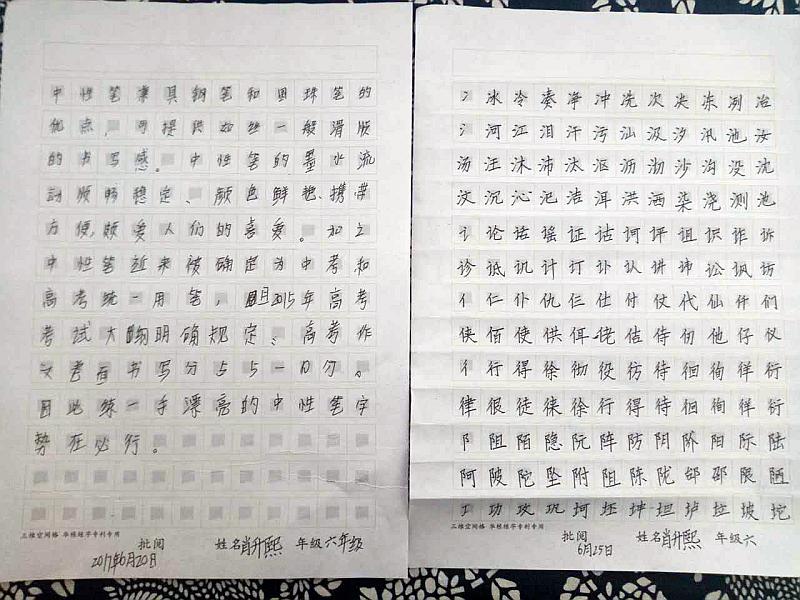 中性笔兼具钢笔和圆珠笔的
优点，可提供如丝一般滑顺
的书写感。中性笔的墨水流
动顺畅稳定、颜色鲜艳、携带
方便，颇受人们的喜爱。加之
中性笔近来被确定为中考和
高考统一用笔，且2015年高考
考试大明确规定、高考作
文考书写分占5—10分。
因此练一手漂亮的中性笔字
势在必行。
三维空间格 华栋练字专利专用
批阅 姓名肖升熙 年级六年级
2017年6月20日
冫冰冷凑净冲冼次尖冻冽冶
氵河江泪汗污汕汲汐汛池汝
汤汪沐沛汰沤沥沏沙沟没沈
汶沉沁汜洁洱洪洒染浇测池
讠论诺谣证诂诃评诅识诈诉
诊诋讥计订讣认讲讳讼讽访
亻仁仆仇仨仕付仗代仙仟们
侠佰使供佴佬估侍份他仔仪
彳行得徐彻役彷待徊徇徉衍
律很徒徕徐行得待徊徇徉衍
阝阻陌隐阮阵防阴阶阳际陆
阿陂陀坠附阻陈陇邰邵限陋
功攻巩坷坯坤坦垆垃坡坨
三维空间格 华栋练字专利专用
批阅 姓名肖升熙 年级六
6月25日